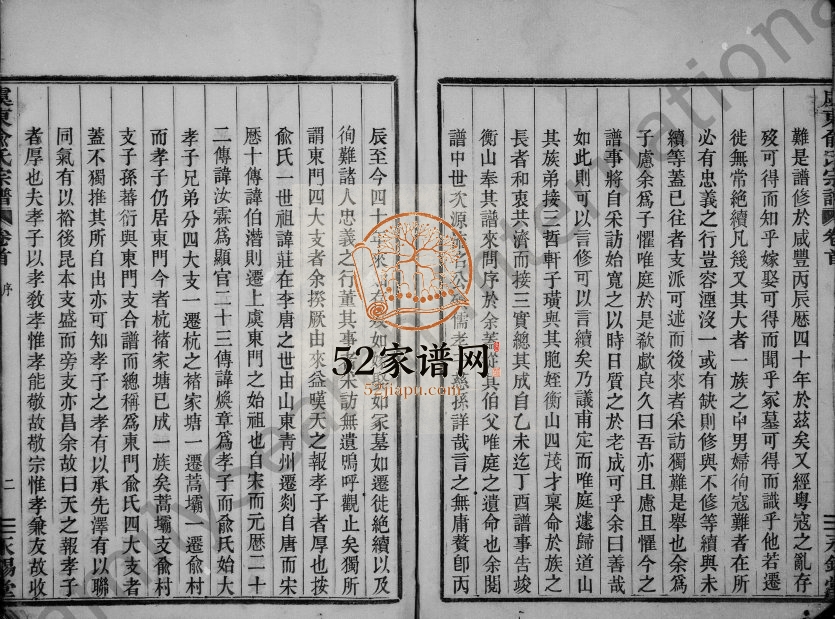 難是譜修於咸豐丙辰歷四十年於茲矣又經粵寇之亂存
歿可得而知乎嫁娶可得而聞乎冢墓可得而識乎他若遷
徙無常絶續凡幾又其大者一族之中男婦徇寇難者在所
必有忠義之行豈容湮沒一或有缺則修與不修等續與未
續等蓋已往者支派可述而後來者采訪獨難是舉也余爲
子慮余爲子懼唯庭於是欷歔良久曰吾亦且慮且懼今之
譜事將自采訪始寬之以時日質之於老成可乎余曰善哉
如此則可以言修可以言續矣乃議甫定而唯庭遽歸道山
其族弟接三哲軒子璜與其胞姪衡山四茂才稟命於族之
長者和衷共濟而接三實總其成自乙未迄丁酉譜事告竣
衡山奉其譜來問序於余蓋從其伯父唯庭之遺命也余閱
譜中世次源流儒孝慈孫詳哉言之無庸贅卽丙
辰至今四十年來歿如嫁娶如冢墓如遷徙絶續以及
徇難諸人忠義之行董其事者采訪無遺嗚呼觀止矣獨所
謂東門四大支者余揆厥由來益嘆天之報孝子者厚也按
俞氏一世祖諱莊在李唐之世由山東靑州遷剡自唐而宋
歷十傳諱伯潛則遷上虞東門之始祖也自宋而元歷二十
二傳諱汝霖爲顯官二十三傳諱煥章爲孝子而俞氏始大
孝子兄弟分四大支一遷杭之褚家塘一遷蒿壩一遷俞村
而孝子仍居東門今者杭褚家塘已成一族矣蒿壩支俞村
支子孫蕃衍與東門支合譜而總稱爲東門俞氏四大支者
蓋不獨推其所自出亦可知孝子之孝有以承先澤有以聯
同氣有以裕後昆本支盛而旁支亦昌余故曰天之報孝子
者厚也夫孝子以孝敎孝惟孝能敬故敬宗惟孝兼友故收
虞東俞氏宗譜
卷首
序
二
永錫堂
虞東俞氏宗譜
卷首
永錫堂
52家谱网
52jiapu.com
FamilySearch International